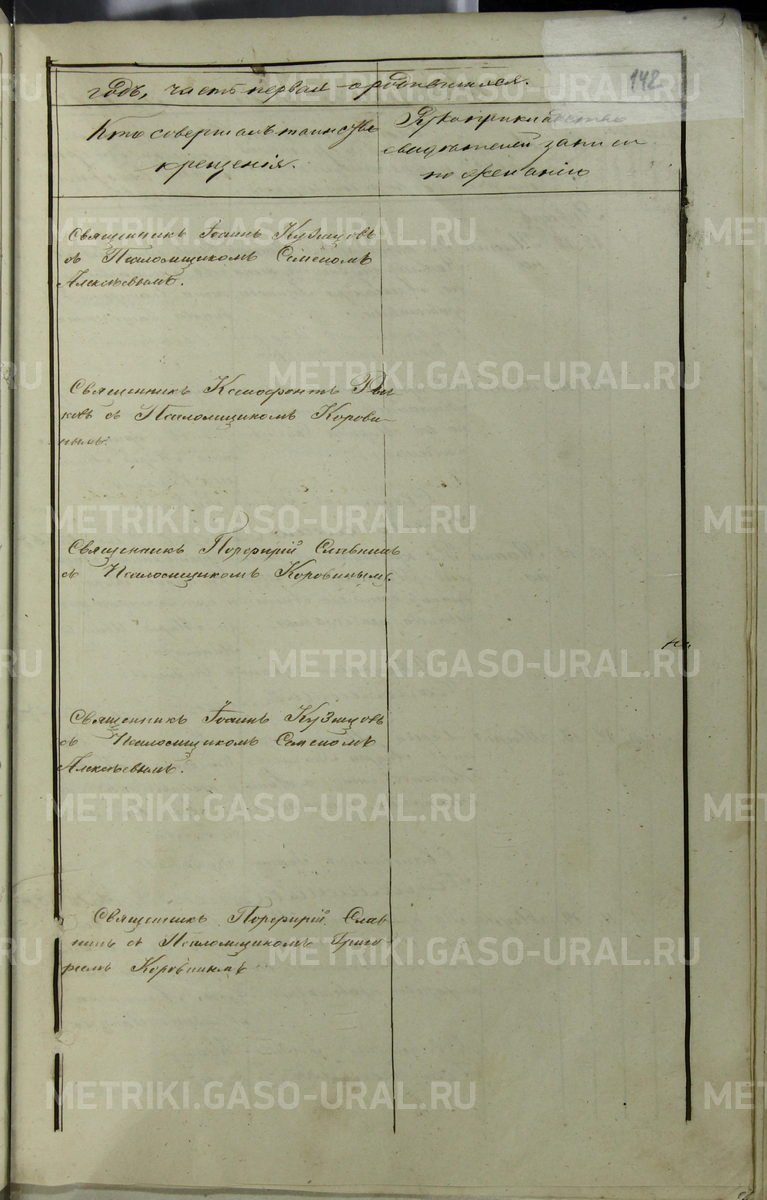 142
годъ, часть первая о родившихся.
Кто совершалъ таинство
крещенія.
Рукоприкладство
свидѣтелей записи
по желанію
Священникъ Іоаннъ Кузнцовъ
съ Псаломщикомъ Семеномъ
Алексѣевымъ.
Священникъ Ксенофонтъ
съ Псаломщикомъ Корови-
нымъ.
Священникъ Порфирій Славнинъ
съ Псаломщикомъ Коровинымъ.
Священникъ Іоаннъ Кузнцовъ
съ Псаломщикомъ Семеномъ
Алексѣевымъ.
Священникъ Порфирій Слав
нинъ съ Псаломщикомъ Григо
ріемъ Коровинымъ
METRIKI.GASO-URAL.RU